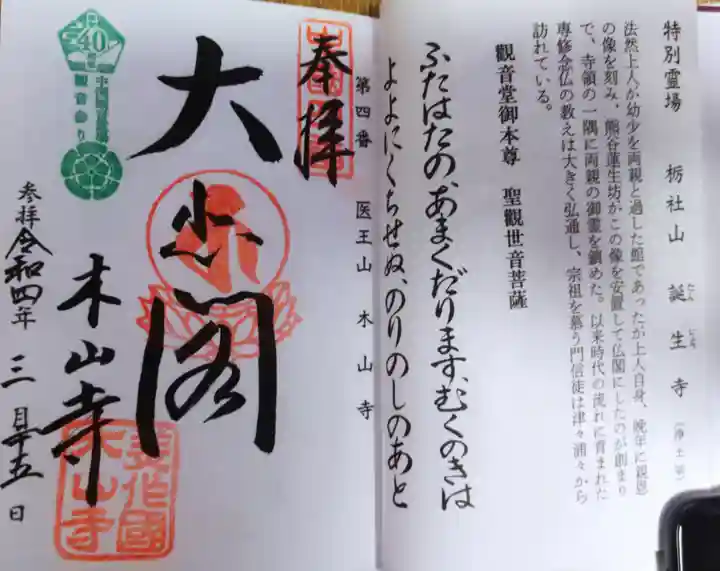 特別霊場 栃社山 誕生寺 (浄土宗)
たんじょうじ
法然上人が幼少を両親と過した館であったが上人自身、晩年に報恩
の像を刻み、熊谷蓮生坊がこの像を安置して仏閣にしたのが創まり
で、寺領の一隅に両親の御霊を鎮めた。以来時代の流れに育まれた
専修念仏の教えは大きく弘通し、宗祖を慕う門信徒は津々浦々から
訪れている。
觀音堂御本尊 聖觀世音菩薩
ふたはたの、あまくだります、むくのきは
よよにくちせぬ、のりのしのあと
第四番 医王山 木山寺
奉拝
大悲閣
木山寺
美作國
木山寺
参拝 令和四年 三月十五日
40
中国観音霊場
観音めぐり